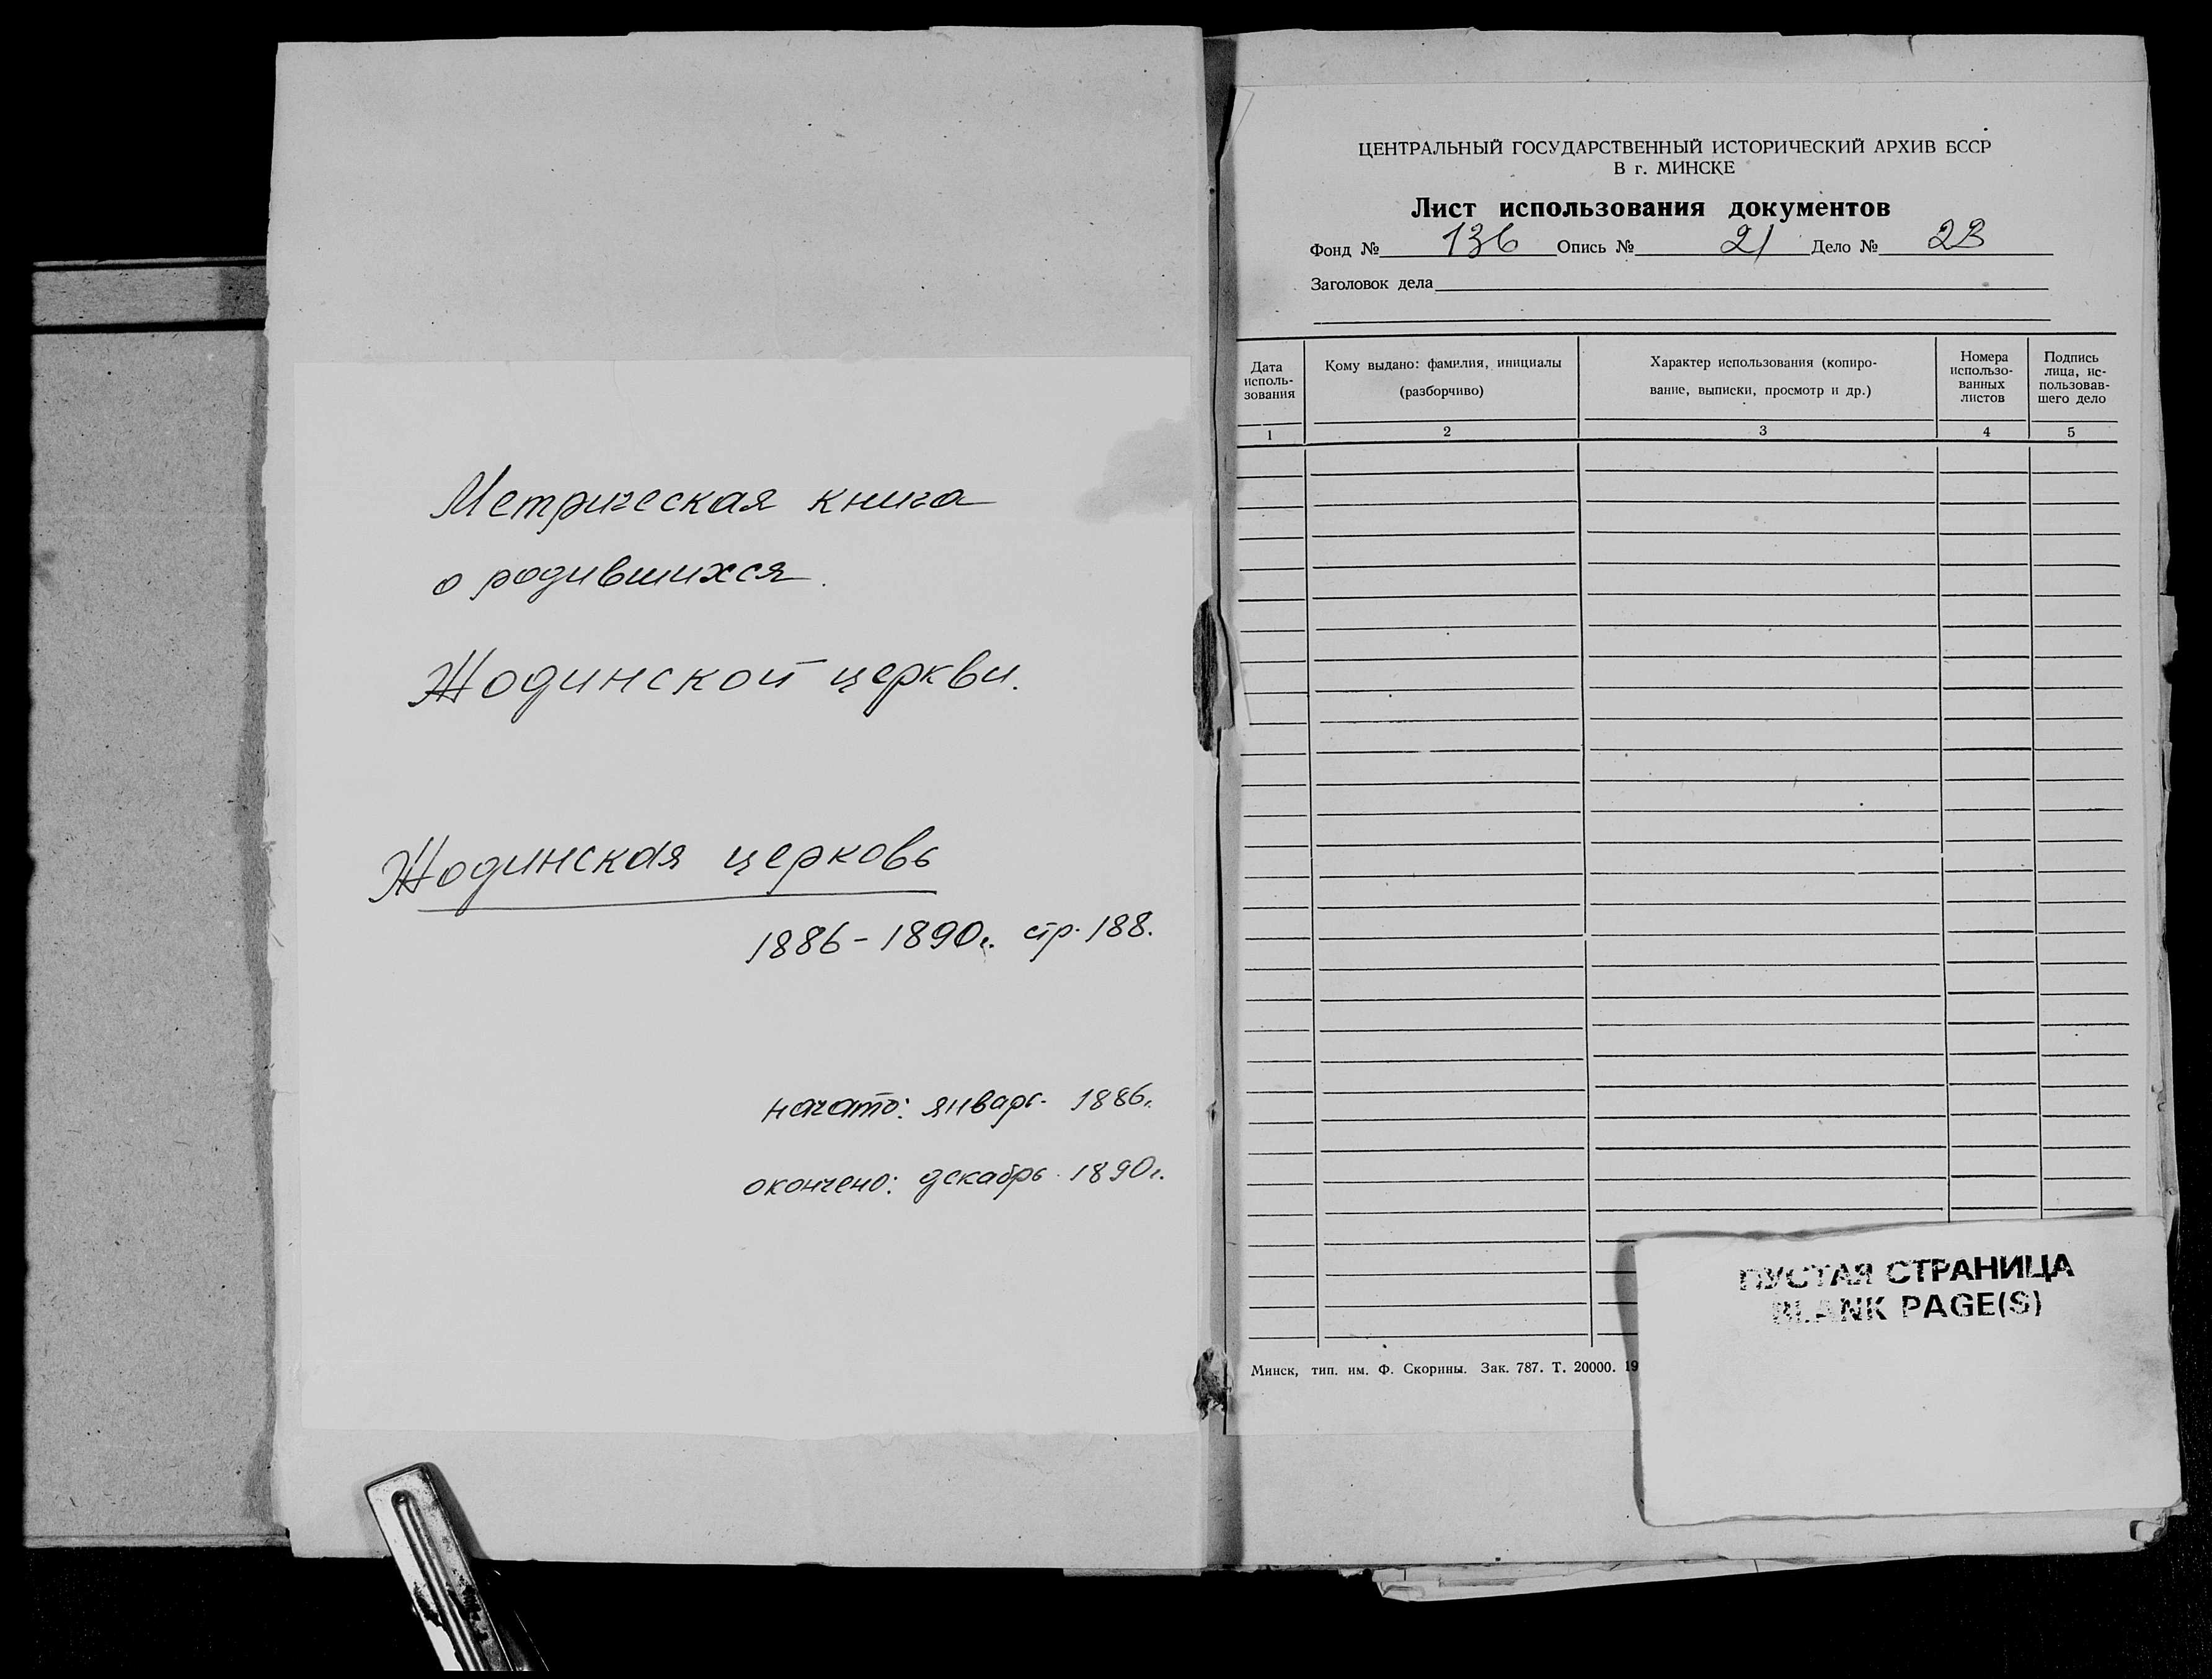 Метрическая книга
о родившихся.
Жодинской церкви.
Жодинская церковь
1886-1890г. стр. 188.
начато: январь 1886г.
окончено: декабрь 1890г.
ЦЕНТРАЛЬНЫЙ ГОСУДАРСТВЕННЫЙ ИСТОРИЧЕСКИЙ АРХИВ БССР
В г. МИНСКЕ
Лист использования документов
Фонд № 136 Опись № 21 Дело № 23
Заголовок дела
Дата исполь-зования
Кому выдано: фамилия, инициалы
(разборчиво)
Характер использования (копиро-
вание, выписки, просмотр и др.)
Номера
использо-
ванных
листов
Подпись
лица, ис-
пользовав-
шего дело
1 2 3 4 5
ПУСТАЯ СТРАНИЦА
BLANK PAGE(S)
Минск, тип. им. Ф. Скорины. Зак. 787. Т. 20000. 19